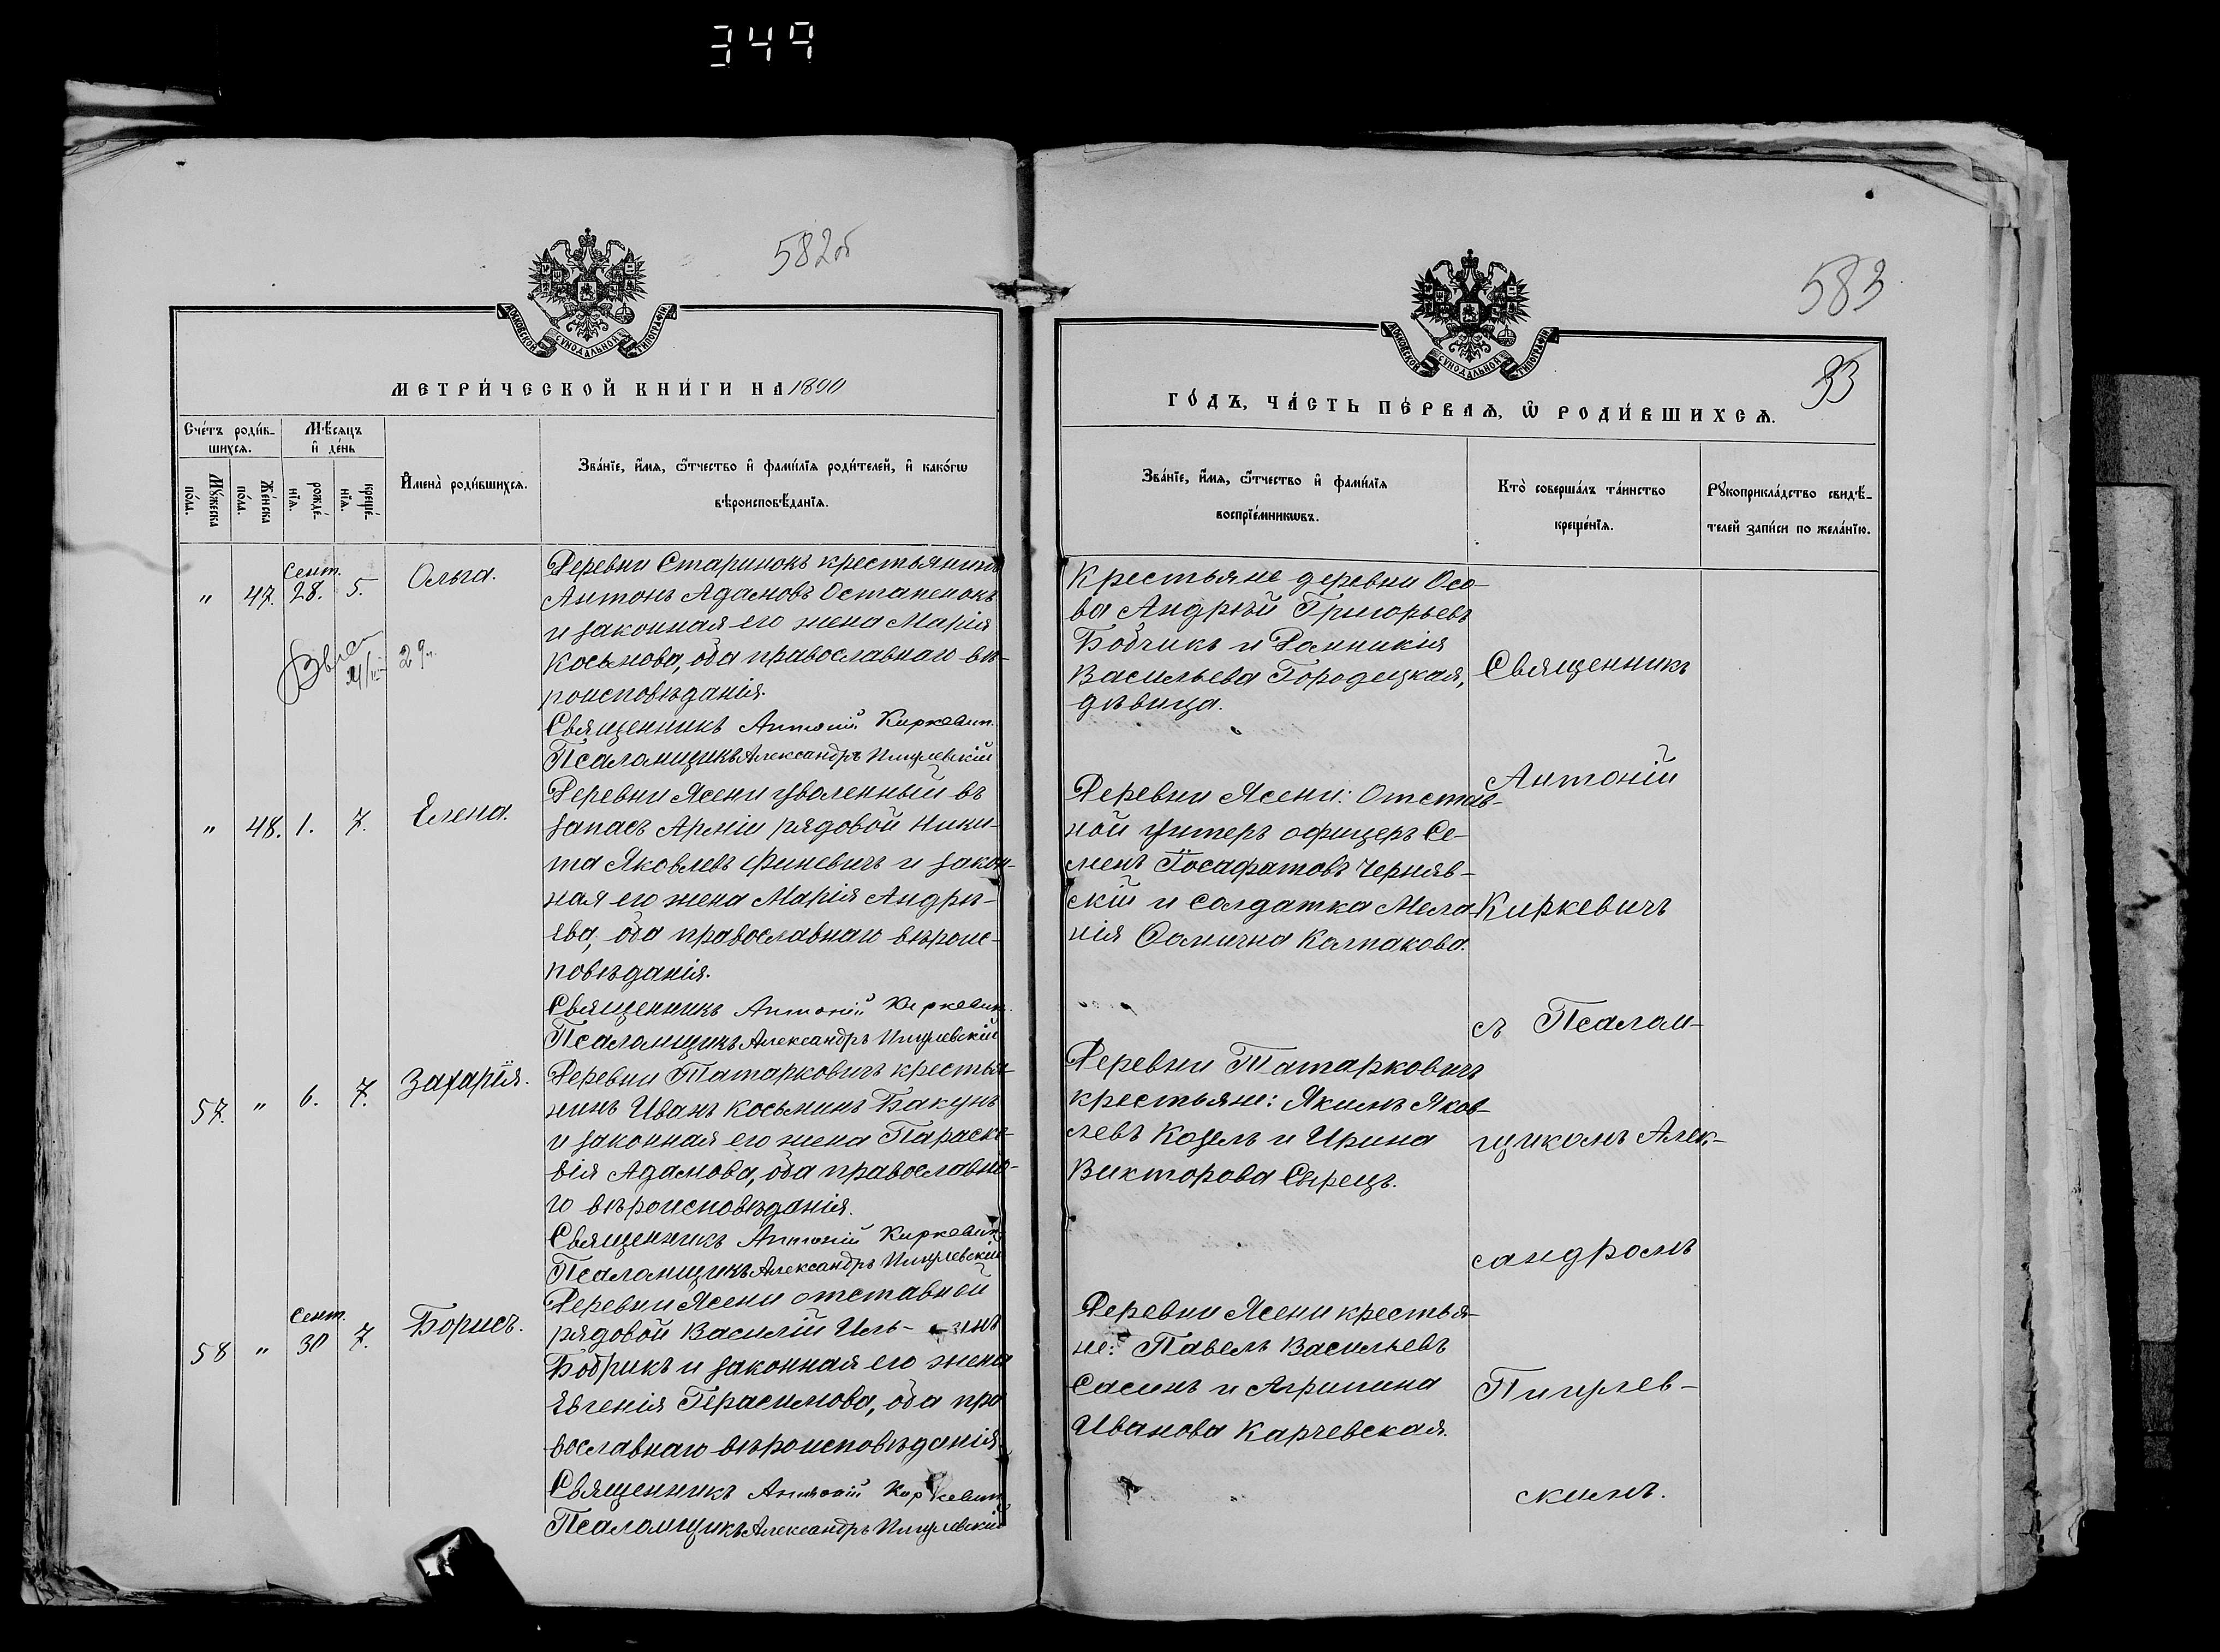 349
582об
МОСКОВСКОЙ СѴНОДАЛЬНОЙ ТИПОГРАФІИ.
МЕТРИ́ЧЕСКОЙ КНИ́ГИ НА 1890
Сче́тъ роди́в-
шихсѧ.
Мꙋ́жеска по́ла.
Же́нска по́ла.
Мѣ́сѧцъ
и҆ де́нь
рожде́-
нїѧ.
креще́-
нїѧ.
И҆мена̀ роди́вшихсѧ.
Зва́нїе, и҆́мѧ, ѻ҆́тчество и҆ фамилїѧ роди́телей, и҆ како́гѡ
вѣроисповѣ́данїѧ.
" 47. Сент. 28. 5. Ольга.
29
Деревни Старинокъ крестьянинъ
Антонъ Адамовъ Остапенокъ
и законная его жена Марія
Косьмова, оба православнаго вѣ-
роисповѣданія.
Священникъ Антоній Киркевич
Псаломщикъ Александръ Пигулевскій
" 48. 1. 7. Елена.
Деревни Ясени уволенный въ
запасъ Арміи рядовой Ники-
та Яковлевъ Финевичъ и закон-
ная его жена Марія Андрѣ-
ева, оба православнаго вѣроис-
повѣданія.
Священникъ Антоній Киркевич
Псаломщикъ Александръ Пигулевскій
57. " 6. 7. Захарія.
Деревни Татарковичъ крестья-
нинъ Иванъ Косьминъ Бакунъ
и законная его жена Параске-
вія Адамова, оба православна-
го вѣроисповѣданія.
Священникъ Антоній Киркевич
Псаломщикъ Александръ Пигулевскій
58 " Сент. 30 7. Борисъ.
Деревни Ясени отставной
рядовой Василій Иль- инъ
Бобрикъ и законная его жена
Евгенія Герасимова, оба пра
вославнаго вѣроисповѣданія
Священникъ Антоній Киркевич
Псаломщикъ Александръ Пигулевскій
583
93
МОСКОВСКОЙ СѴНОДАЛЬНОЙ ТИПОГРАФІИ.
ГО́ДЪ, ЧА́СТЬ ПЕ́РВАѦ, Ѡ҆ РОДИ́ВШИХСѦ.
Зва́нїе, и҆́мѧ, ѻ҆́тчество и҆ фами́лїѧ
воспрїе́мникѡвъ.
Кто̀ соверша́лъ та́инство
креще́нїѧ.
Рꙋкоприкла́дство свидѣ́-
телей за́писи по жела́нїю.
Крестьяне деревни Осо-
ва Андрей Григорьевъ
Бобчикъ и Домникія
Васильева Городецкая,
дѣвица.
Деревни Ясени: Отстав-
ной унтеръ офицеръ Се-
менъ Іосафатовъ Черняв-
скій и солдатка Мела
нія Фомична Колпакова.
Деревни Татарковичъ
крестьяне: Якимъ Яков-
левъ Козелъ и Ирина
Викторова Сырецъ.
Деревни Ясени крестья-
не: Павелъ Васильевъ
Сасинъ и Агрипина
Иванова Карчевская.
Священникъ
Антоній
Киркевичъ
съ Псалом-
щикомъ Алек-
сандромъ
Пигулев-
скимъ.